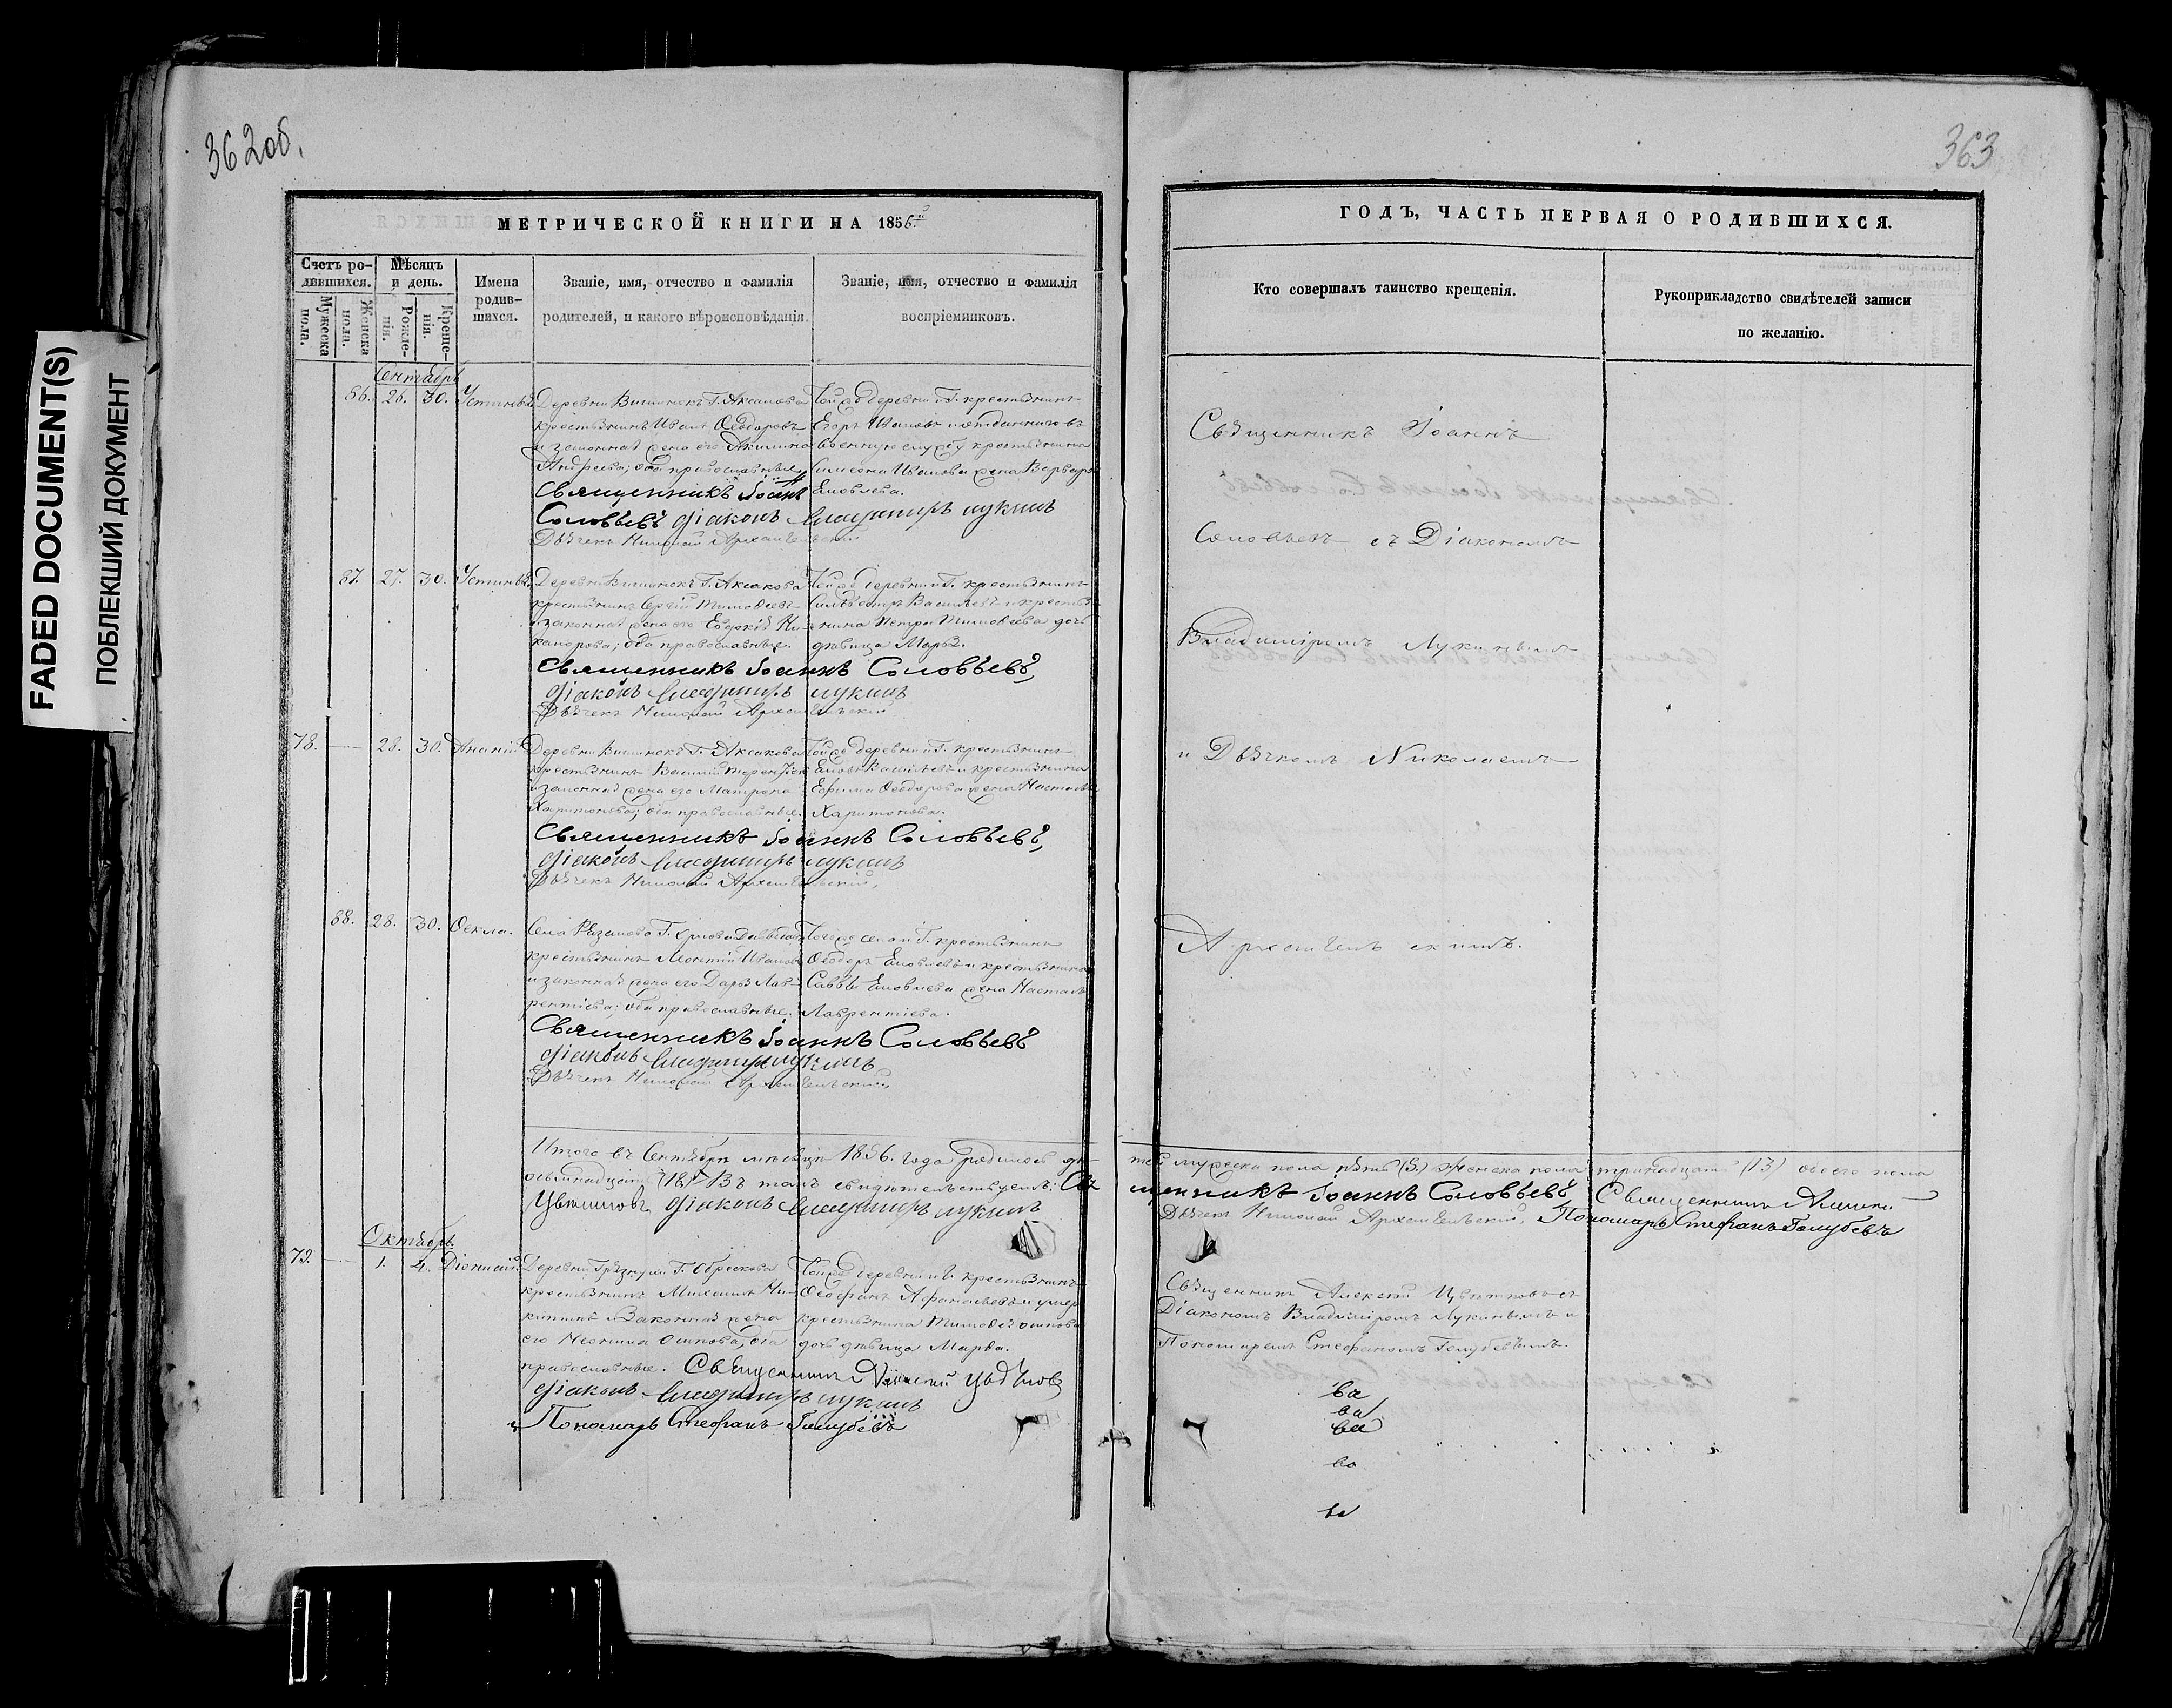 362об.
МЕТРИЧЕСКОЙ КНИГИ НА 1856й
Счетъ родившихся.
Мужеска пола.
Женска пола.
Мѣсяцъ и день.
Рожденія.
Крещенія.
Имена родившихся.
Званіе, имя, отчество и фамилія родителей, и какого вѣроисповѣданія.
Званіе, имя, отчество и фамилія воспріемниковъ.
Сентябрь
86. 26. 30.
крестьянинъ Иванъ Ѳеодоровъ
и законная жена его Акилина
Андреева; оба православные.
Той же деревни и Г. крестьянинъ
Егоръ Ивановъ и отданнаго въ
военную службу крестьянина
Симеона Иванова жена Варвара
Яковлева.
Священникъ Іоаннъ
Соловьевъ Діаконъ Владиміръ Лукинъ
Дьячекъ Николай Архангельскій
87. 27. 30.
крестьянинъ Сергій Тимоѳеевъ
и законная жена его Евдокія Ни-
канорова; оба православные.
Той же деревни и Г. крестьянинъ
Сильвестръ Васильевъ и крестья-
нина Петра Тимоѳеева дочь
дѣвица Марья.
Священникъ Іоаннъ Соловьевъ,
Діаконъ Владиміръ Лукинъ
Дьячекъ Николай Архангельскій
78. — 28. 30. Ананій
крестьянинъ Василій
и законная жена его Матрона
Харитонова; оба православные.
Той же деревни и Г. крестьянинъ
Яковъ Васильевъ и крестьянина
Ефима Ѳеодорова жена Настасья
Харитонова.
Священникъ Іоаннъ Соловьевъ,
Діаконъ Владиміръ Лукинъ
Дьячекъ Николай Архангельскій,
88. 28. 30. Ѳекла.
крестьянинъ Иванов
и законная жена его Дарья Лав-
рентіева; оба православные.
Того же села и Г. крестьянинъ
Ѳеодоръ Яковлевъ и крестьянина
Саввы Яковлева жена Настасья
Лаврентіева.
Священникъ Іоаннъ Соловьевъ
Діаконъ Владиміръ Лукинъ
Дьячекъ Николай Архангельскій,
Итого въ Сентябрѣ мѣсяцѣ 1856. года родилось дѣ-
осьмнадцать (18) Въ томъ свидѣтельствуемъ: Свя
Цвѣтковъ Діаконъ Владиміръ Лукинъ
Октябрь.
79. — 1. 4. Діонисій.
крестьянинъ Михаилъ Ни-
китинъ и Законная жена
его Осипова, оба
православные.
Той же деревни и Г. крестьянинъ
Ѳеофанъ Аѳанасьевъ и умер
крестьянина Тимоѳея Осипова
дочь дѣвица Марѳа.
Священникъ Алексій Цвѣтковъ
Діаконъ Владиміръ Лукинъ
Пономарь Стефанъ Голубевъ
363
ГОДЪ, ЧАСТЬ ПЕРВАЯ О РОДИВШИХСЯ.
Кто совершалъ таинство крещенія.
Рукоприкладство свидѣтелей записи по желанію.
Священникъ Іоаннъ
Соловьевъ съ Діакономъ
Владиміромъ Лукинымъ
и Дьячкомъ Николаемъ
Архангельскимъ.
тей мужеска пола пять (5.) Женска пола тринадцать (13) обоего пола
щенникъ Іоаннъ Соловьевъ, Священникъ
Дьячекъ Николай Архангельскій, Пономарь Стефанъ Голубевъ
Священникъ Алексій Цвѣтковъ съ
Діакономъ Владиміромъ Лукинымъ и
Пономаремъ Стефаномъ Голубевымъ.
ва
ва
ва
во
ва
FADED DOCUMENT(S)
ПОБЛЕКШИЙ ДОКУМЕНТ